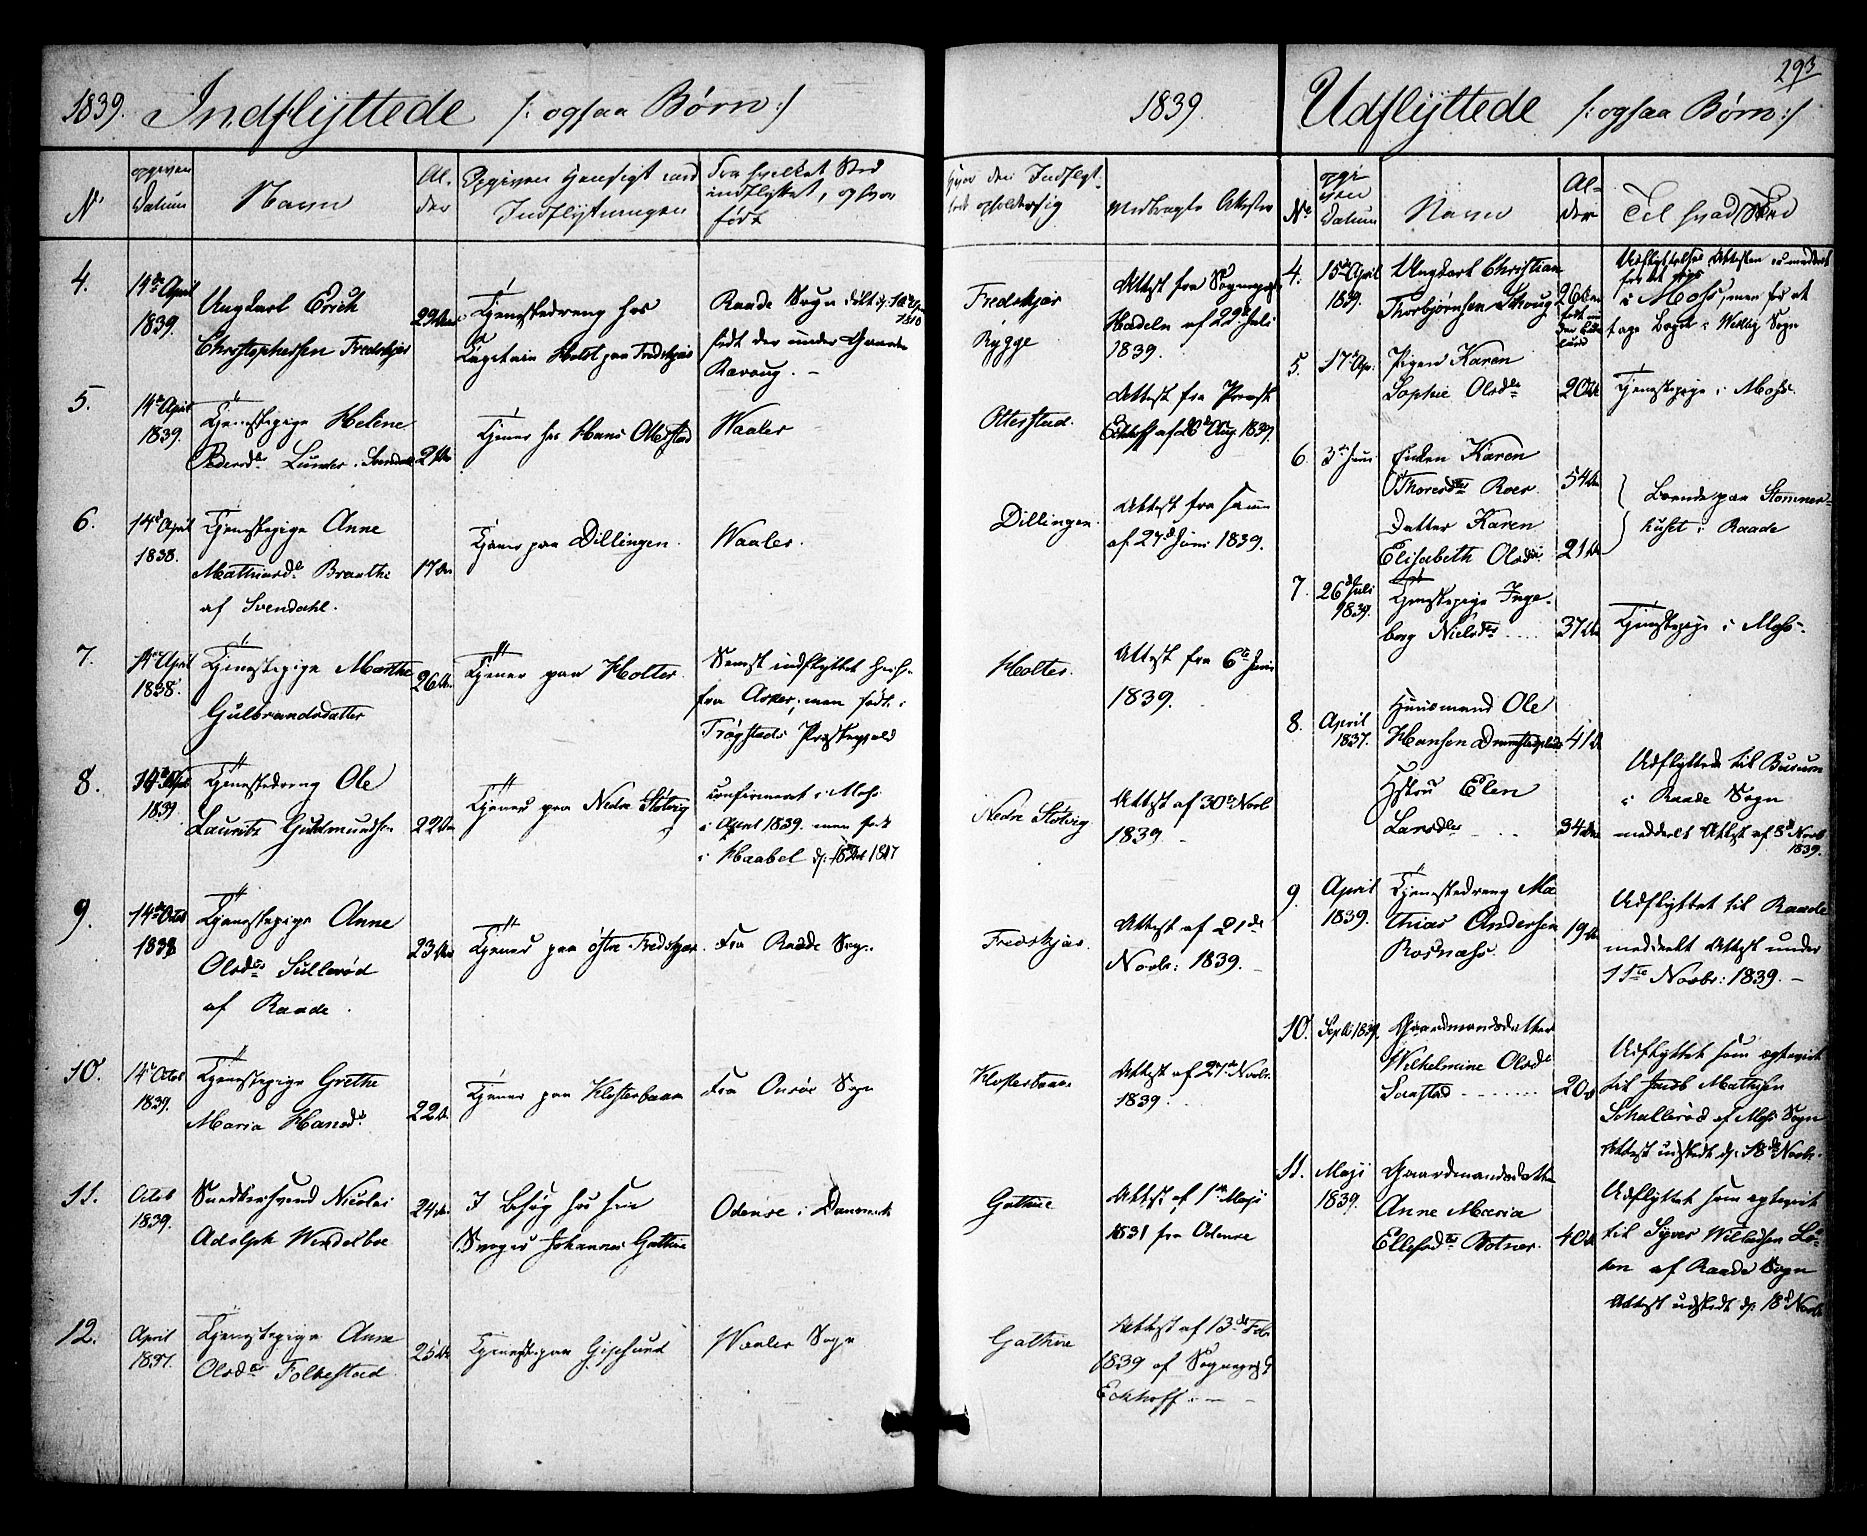 293
1839. Indflyttede /: ogsaa Børn :/
No
opgiven Datum
Navn
Al-
der
Opgiven Hensigt med
Indflytningen
Fra hvilket Sted
indflyttet, og hvor
født
Hvor den Indflyt-
tede opholder sig
Medbragte Attester
4.
14de April
1839.
Ungkarl Erich
Christophersen Fredskjær
29
Tjenestedreng hos
Capitain Holst paa Fredskjær
Raade Sogn
født der under Gaarden
Ravaug. -
Fredskjær
Rygge
Attest fra Sognepr.
af 22de Juli
1839.
5.
14de April
1839.
Tjenestepige Helene
Pedersd. Lunder i Svendal
Tjener hos Hans Otterstad
Waaler
Otterstad.
Attest fra Provst
Eckhoff af 26de Aug 1839.
6.
14de April
1838.
Tjenestepige Anne
Mathisd. Braathe
af Svendahl.
17
Tjener paa Dillingen.
Waaler.
Dillingen.
Attest fra samme
af 27de Juni 1839.
7.
14de April
1838.
Tjenestepige Marthe
Gulbrandsdatter
26
Tjener paa Holter.
Senest indflyttet
fra Asker, men født i
Trøgstads Præstegjeld
Holter.
Attest fra 6te Juni
1839.
8.
14de April
1839
Tjenestedreng Ole
Lauritz Guldmundsen
22
Tjener paa Nedre Støtvig
confirmert i Moss
i April 1839. men født
i Haabel
Nedre Støtvig
Attest af 30te Novb
1839. -
9.
14de Octob
1838
Tjenestepige Anne
Olsd. Sullerød
af Raade.
23
Tjener paa østre Fredskjær.
Fra Raade Sogn.
Fredskjær.
Attest af 21de
Novbr: 1839. -
10.
14de Octob
1839.
Tjenestepige Grethe
Maria Hansd.
22
Tjener paa Klosterbaan
Fra Onsøe Sogn
Klosterbaan
Attest af 27de Novbr.
1839.
11.
Octob
1839.
Snedkersvend Nicolai
Adolph Wendelboe
24
I Besøg hos sin
Svoger Johannes Gathue
Odense i Danmark
Gathue
Attest af 1ste Maji
1831 fra Odense
12.
April
1837.
Tjenestepige Anne
Olsd. Folkestad
25
Tjeneste paa Gipsund
Waaler Sogn
Gathue
Attest af 13de Feb.
1839 af Sognepr.
Eckhoff. -
1839. Udflyttede /: ogsaa Børn :/
No
opgi-
ven
Datum
Navn
Al-
der
Til hvad Sted
4.
15de April
1839.
Ungkarl Christian
Thorbjørnsen Skoug
26
Udflyttelses Attesten er meddelt
i Moss, men for at
tage Bopæl i Westby Sogn
5.
17de Ap.
Pigen Karen
Sophie Olsd.
20
Tjenestepige i Moss.
6
3de Juni
Enken Karen
Thoresd. Roer
54
Datter Karen
Elisabeth Olsd.
21
Boende paa Stommer-
huset i Raade
7.
26de Juli
1839.
Tjenestepige Inge-
borg Nielsd. ....
37
Tjenestepige i Moss.
8.
April
1837.
Huusmand Ole
Hansen
41
Hstru Elen
Larsd.
34
Udflyttede til Burum
i Raade Sogn
meddelt Attest af 8de Novb
1839.
9.
April
1839.
Tjenestedreng Ma
thias Andersen
Rosnæss.
19
Udflyttet til Raade
meddelt Attest under
11te Novbr: 1839. -
10.
Septb 1839.
Gaardmandsdatter
Wilhelmine Olsd.
Saastad
20
Udflyttet som egtevict
til Jacob Mathisen
Skallerød af Moss Sogn
Attest udstedt d. 18de Novbr.
11.
Maji
1839.
Gaardmandsdatter
Anne Maria
Ellefsd. Botner.
40
Udflyttet som egtevict
til Syver
af Raade Sogn
Attest udstedt d. 18de Novb.